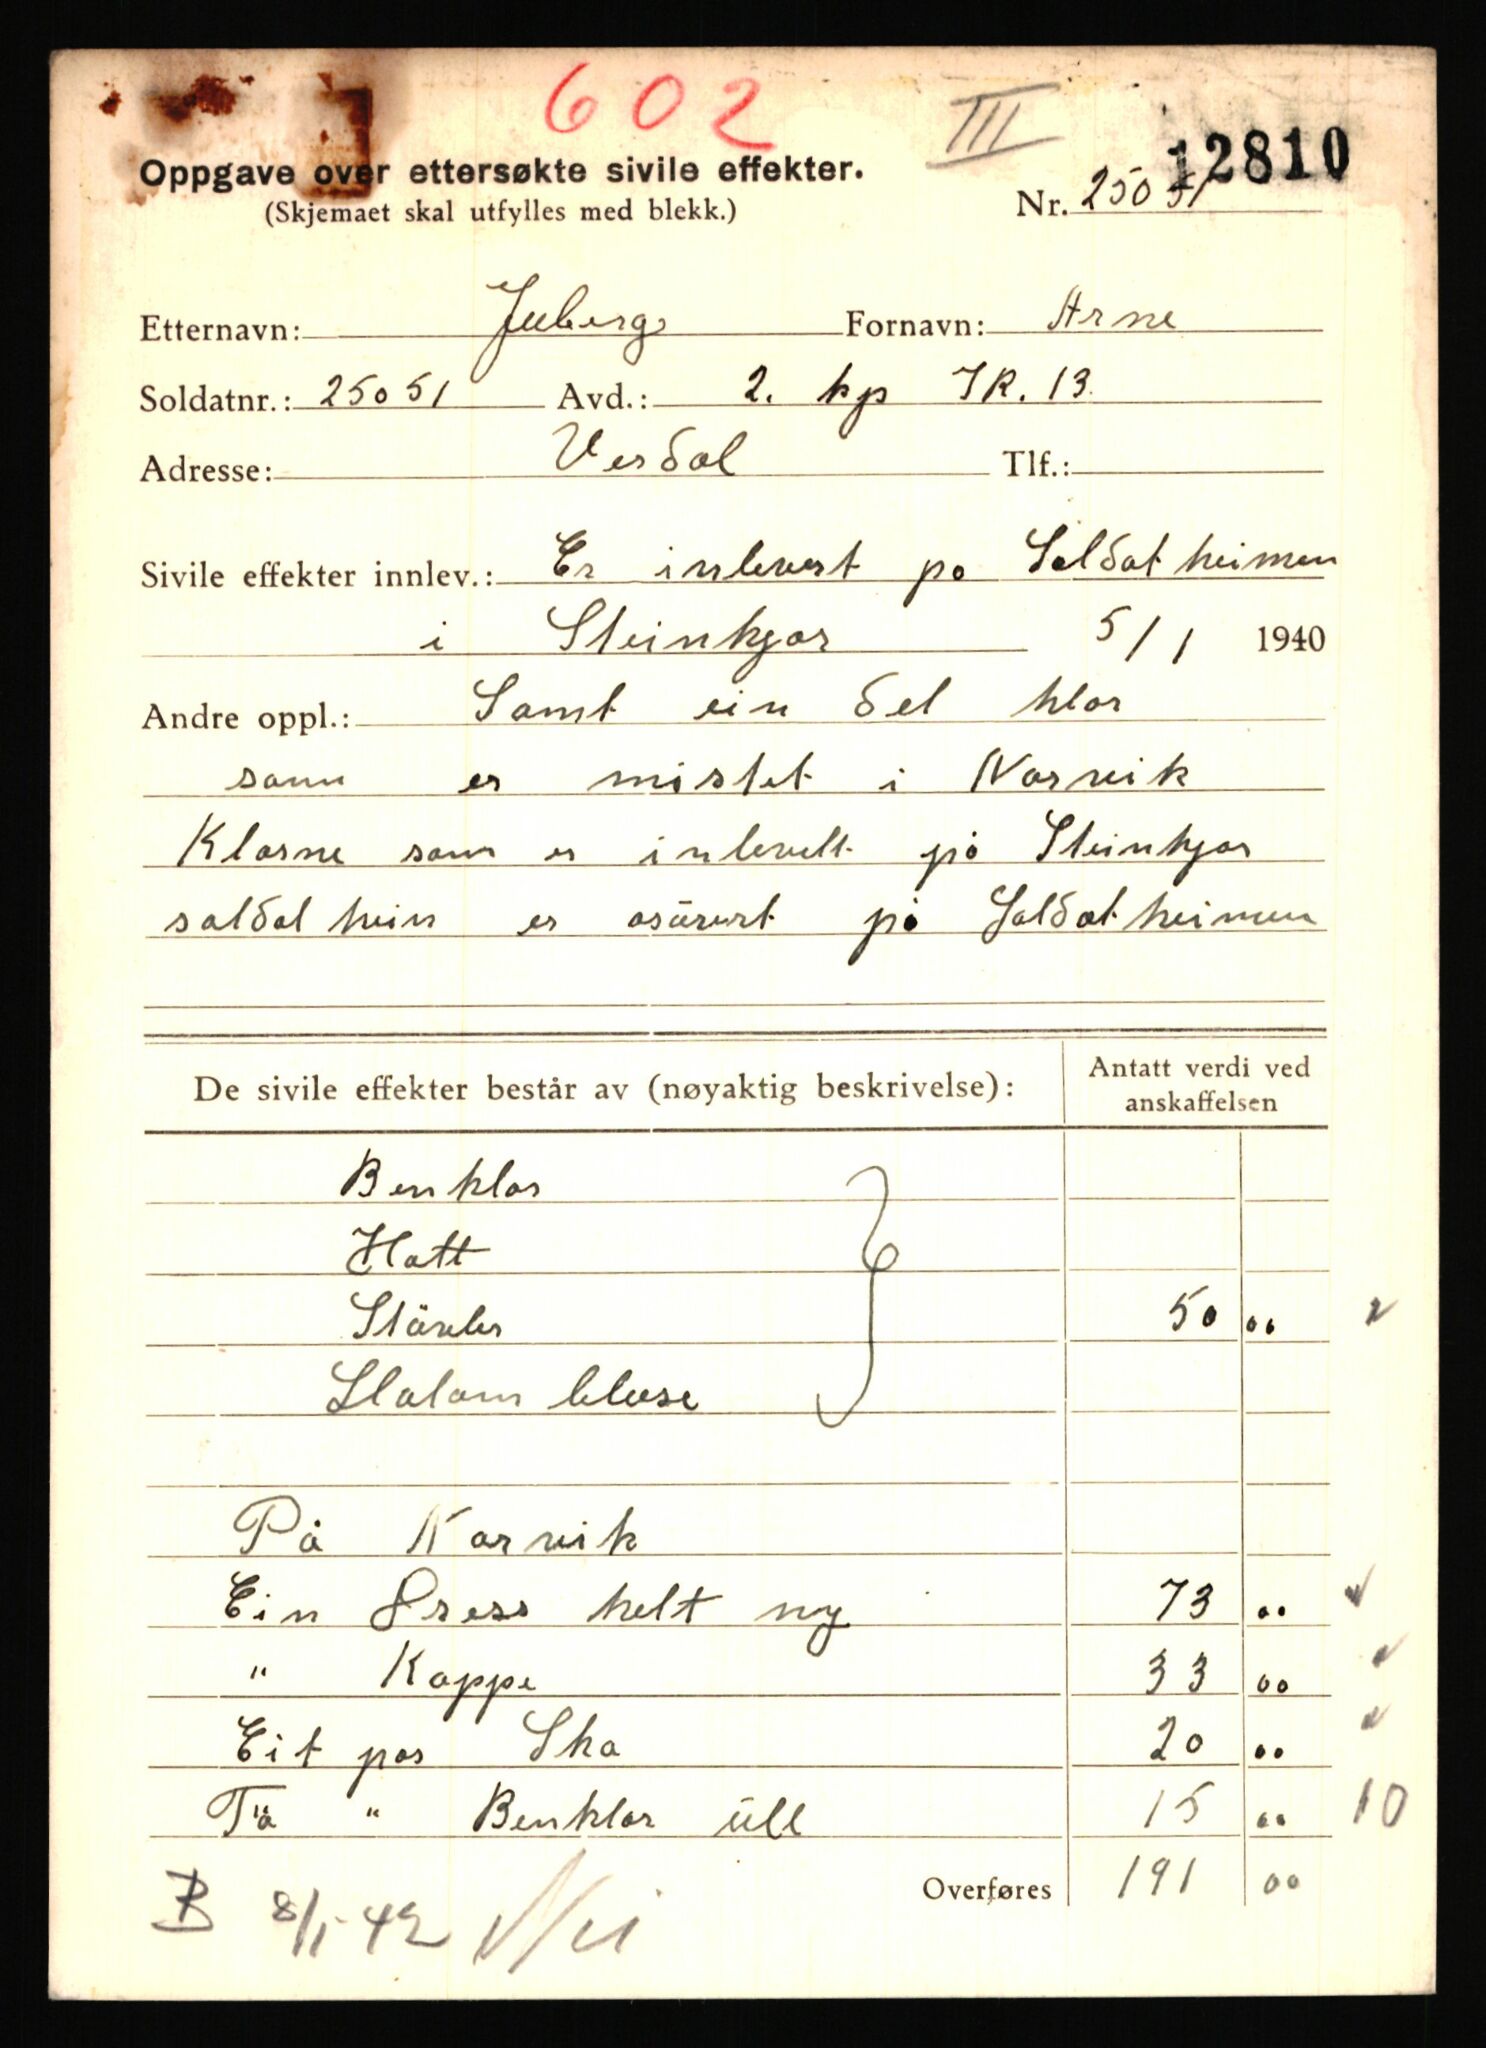 602 III 12810
Oppgave over ettersøkte sivile effekter.
(Skjemaet skal utfylles med blekk.)
Nr. 25051
Etternavn: Juberg Fornavn: Arne
Soldatnr.: 25051 Avd.: 2. kp IR. 13.
Adresse: Verdal Tlf.:
Sivile effekter innlev.: Er inlevert på Soldatheimen
i Steinkjær 5/1 1940
Andre oppl.: Samt ein del klær
som er mistet i Narvik
Klærne som er inlevelt på Steinkjær
soldatheim er på Soldatheimen
De sivile effekter består av (nøyaktig beskrivelse):
Antatt verdi ved
anskaffelsen
Benklær
Hatt
Stövler 50 00
Slalam bluse
På Narvik
Ein Dress helt ny 73 00
" Kappe 33 00
Eit par Sko 20 00
To " Benklær ull 15 00 10
Overføres 191 00
B 8/1-42 Nei